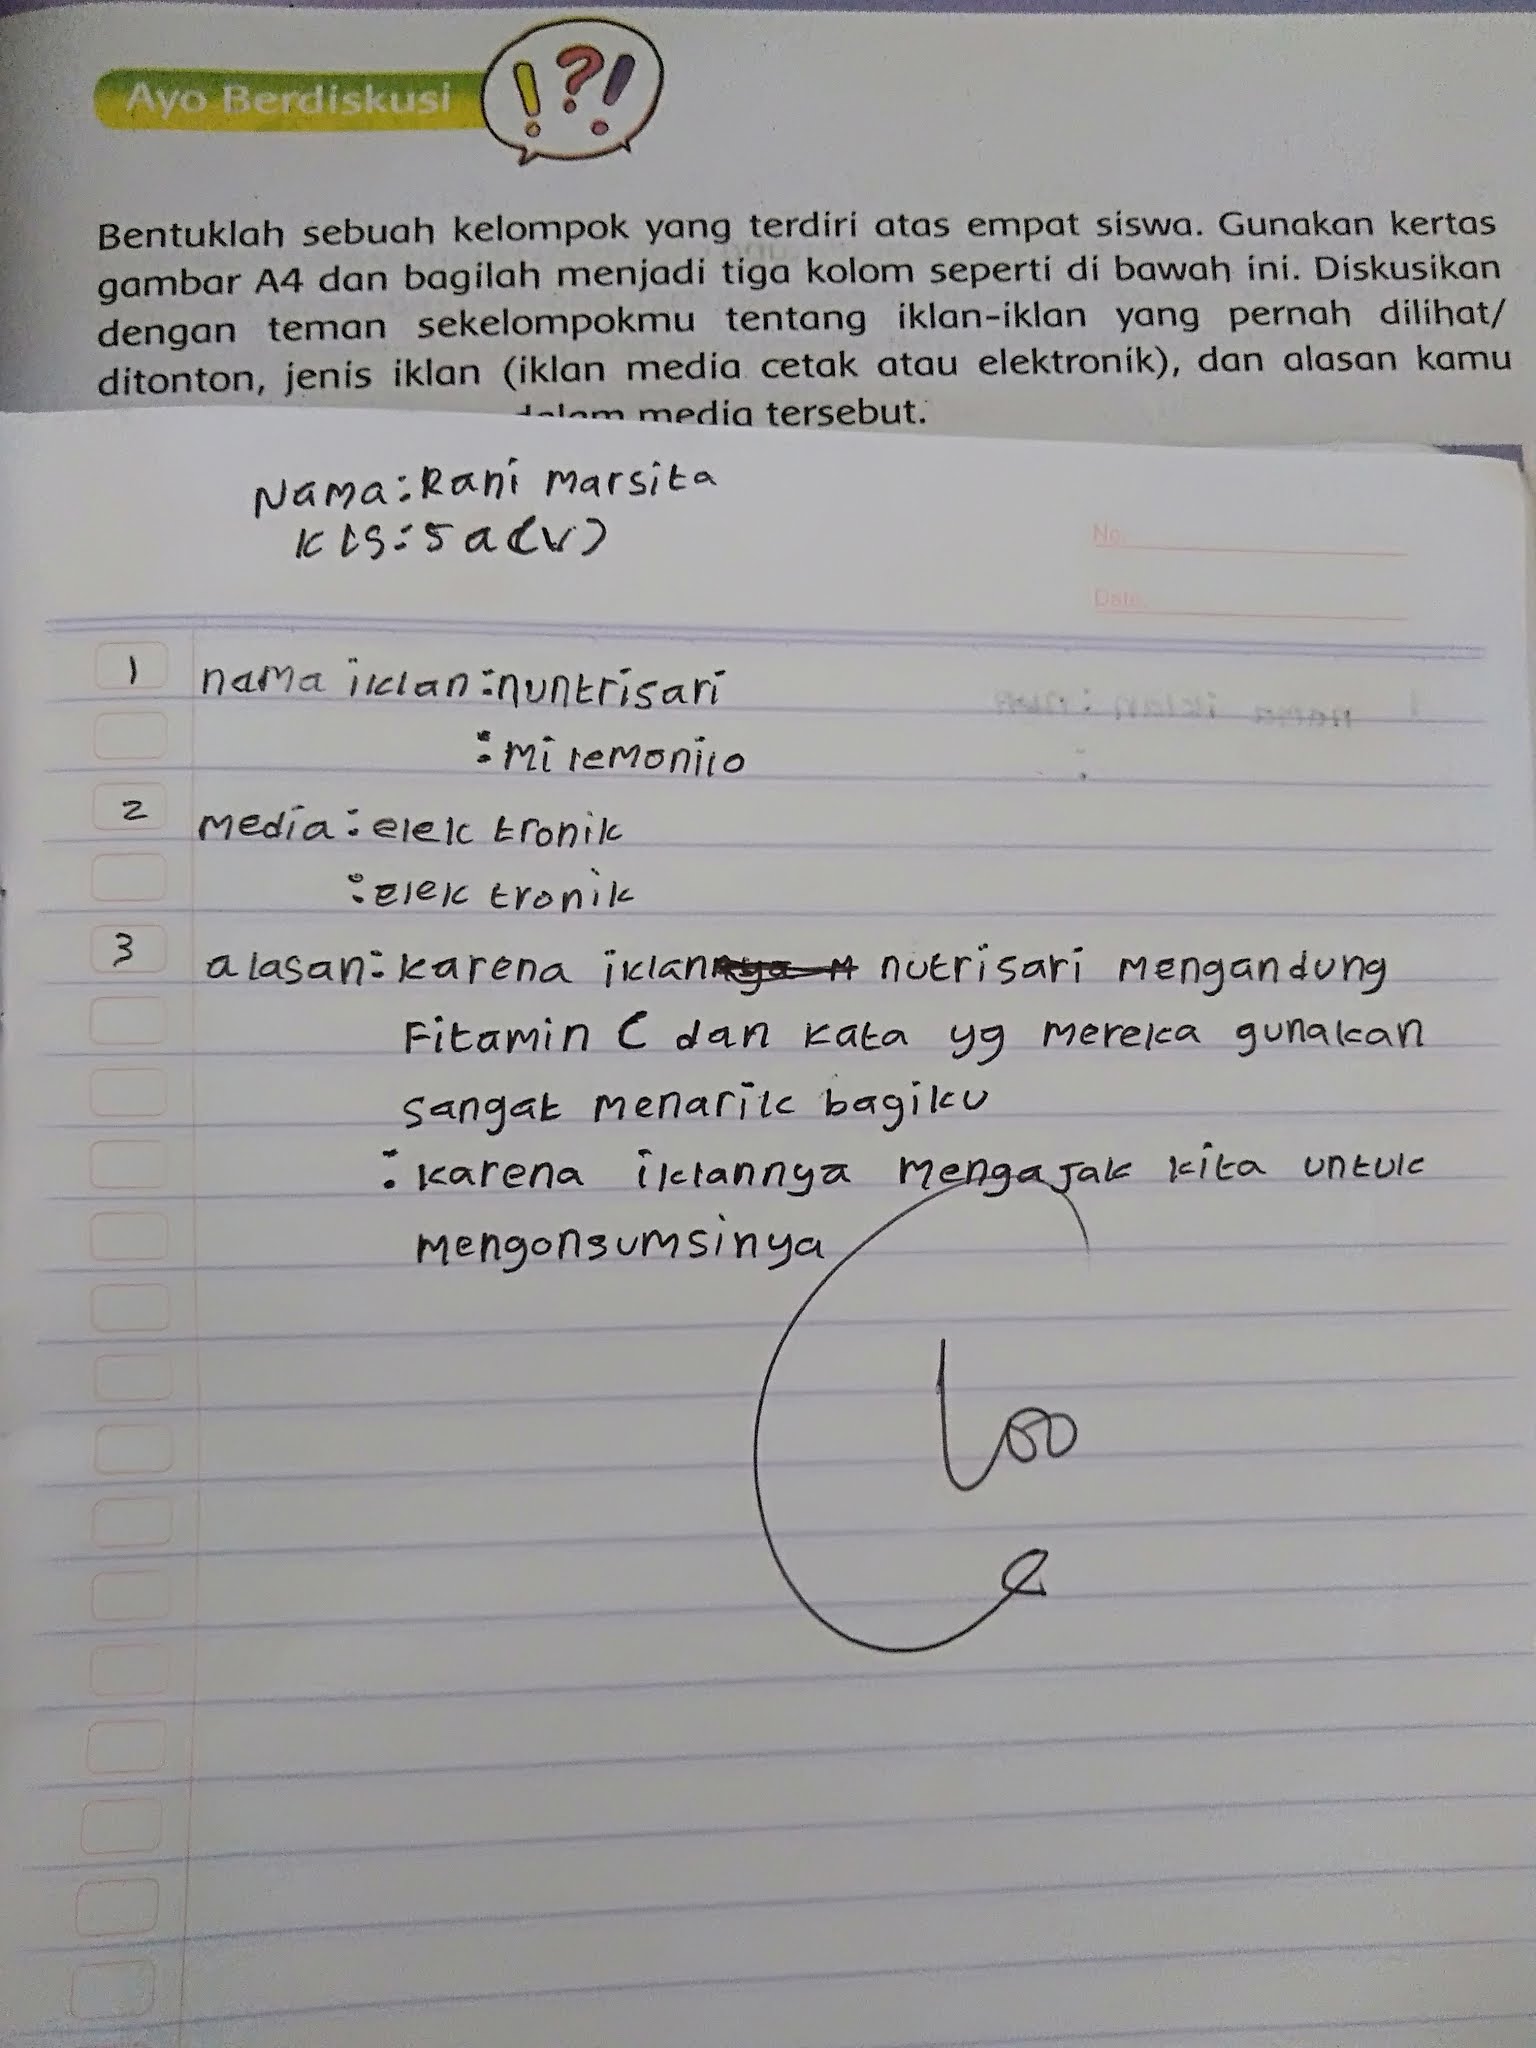 Ayo Berdiskusi
!?!
Bentuklah sebuah kelompok yang terdiri atas empat siswa. Gunakan kertas
gambar A4 dan bagilah menjadi tiga kolom seperti di bawah ini. Diskusikan
dengan teman sekelompokmu tentang iklan-iklan yang pernah dilihat/
ditonton, jenis iklan (iklan media cetak atau elektronik), dan alasan kamu
dalam media tersebut.
Nama: Rani Marsita
Kls: 5 a (V)
No.
Date.
1 nama iklan : nuntrisari
: mi lemonilo
2 media : elek tronik
: elek tronik
3 alasan : karena iklan nutrisari mengandung
Fitamin C dan kata yg mereka gunakan
sangat menarik bagiku
: karena iklannya mengajak kita untuk
mengonsumsinya
100